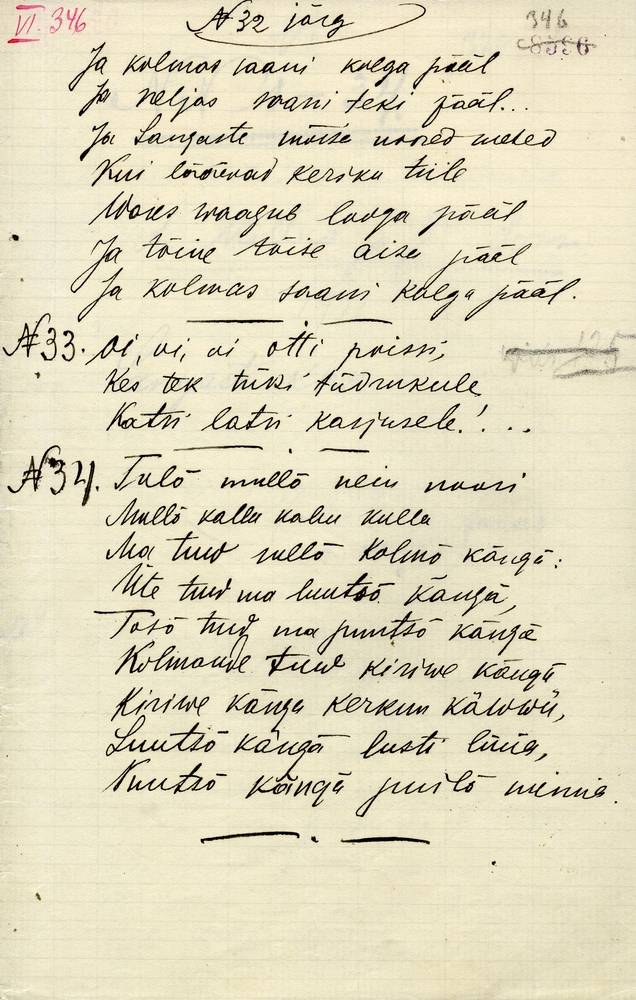 VI. 346
№ 32 järg
346
Ja kolmas saani kolga pääl
Ja neljas saani teki pääl...
Ja Sangaste mõisa noored mehed
Kui lööevad keriku tiile
Üits waagub looga pääl
Ja tõine tõise aisa pääl
Ja kolmas saani kolga pääl.
№ 33. Oi, oi, oi otti poissi,
Kes tek tüki tüdrukule
Katsi latsi karjusele!...
№ 34. Tulõ mullõ nein noori
Mullõ kallu kullu
Ma tuu sullõ kolmõ kängä:
Üte tuu ma luutsõ kängä,
Tõsõ tuu ma puutsõ kängä
Kolmande tuu kiriwe kängä
Kiriwe kängä kerkun käwwü,
Luutsõ kängä lusti lüüa,
Puutsõ kängä puilõ minnä.